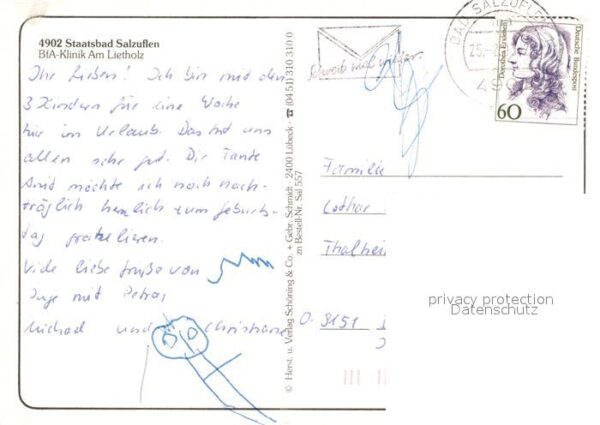 4902 Staatsbad Salzuflen
BfA-Klinik Am Lietholz
Ihr Lieben! Ich bin mit den
3 Kindern für eine Woche
hier im Urlaub. Das tut uns
allen sehr gut. Dir Tante
möchte ich noch nach-
träglich herzlich zum Geburts-
tag gratulieren.
Viele liebe Grüße von
Inge mit Petra,
Michael und Christiane
© Herst. u. Verlag Schöning & Co. + Gebr. Schmidt · 2400 Lübeck · ☎ (04 51) 310 310 0
zn Bestell-Nr. Sal 557
Schreib mal wieder.
BAD SALZUFLEN
25.
49
60
Deutsche Bundespost
Dorothea Erxleben
Familie
Lothar
Thalheim
O-9151
privacy protection
Datenschutz